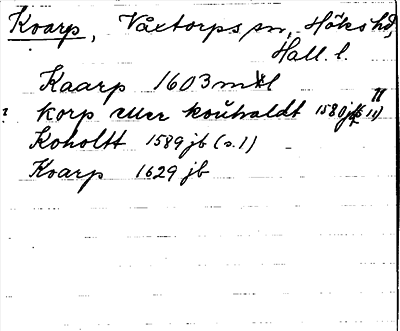 Kvarp, Våxtorps sn, Höks hd,
Hall. l.
Kaarp 1603 mtl
? korp eller kouhaldt 1580 jb 11)
Koholtt 1589 jb (s. 1)
Kvarp 1629 jb